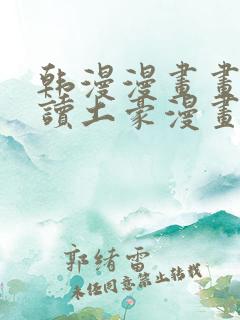 韩漫漫畫畫
讀土豪漫畫
郭緒雷
未经同意禁止转载